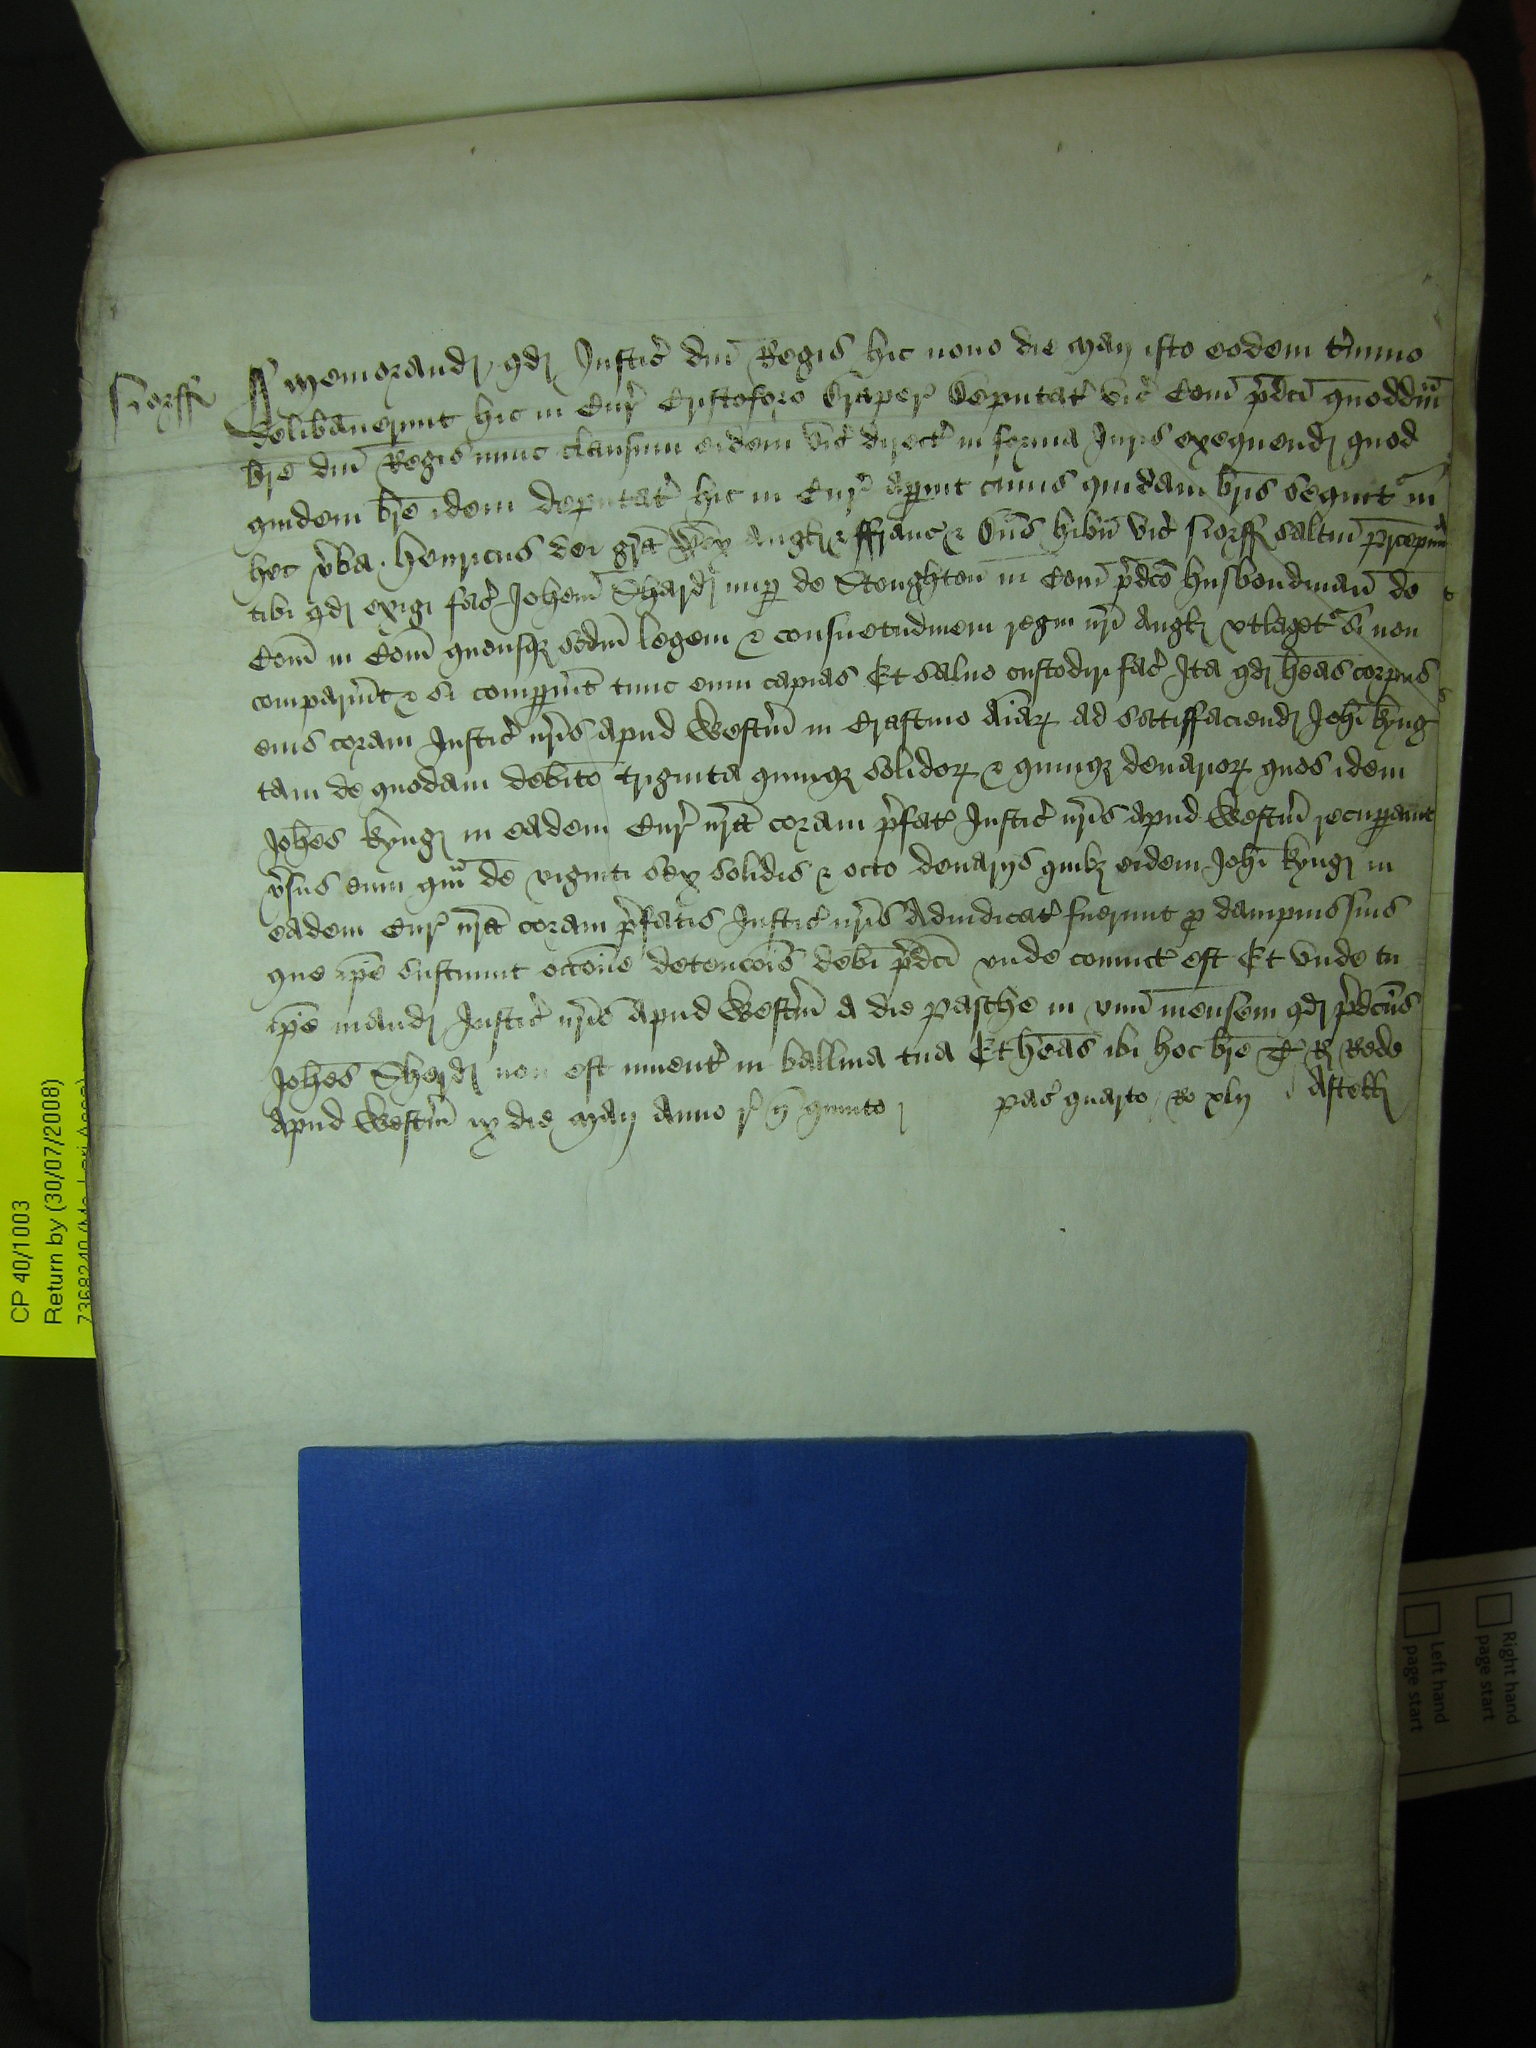 Norff Memorand qd Justic dni Regis hic nono die Maij isto eodem termino
delibaverunt hic in Cur Cristoforo Draper Deputat vic Com pdci quoddam
bre dni Regis nunc clausum eidem vic direct in forma Juris exequend quod
quidem bre idem deputat hic in Cur apperuit cuius quidam bris sequit in
hec vba. Henricus dei gra Rex Angl & ffranc & Dns hibn vic Norff saltm precepim
tibi qd exigi fac Johem Sherd nup de Stoughton in Com pdco husbondman de
Com in Com quousq scdm legem & consuetudinem regni nri Angl utlaget si non
comparuit & si comparuit tunc eum capias Et salvo custodiri fac Ita qd heas corpus
eius coram Justic nris apud Westm in Crastino Aiar ad satisfaciend Johi Kyng
tam de quodam debito triginta quinq solidor & quinq denarior quos idem
Johes Kyng in eadem Cur nra coram pfat Justic nris apud Westm recuperavit
vsus eum qm de viginti sex solidis & octo denarijs quib eidem Johi Kyng in
eadem Cur nra coram pfatis Justic nris Adiudicat fuerunt p dampnis suis
que ipe sustinuit occone detencois debi pdci unde convict est Et unde tu
ipe mand Justic nris Apud Westm a die pasche in unu mensem qd pdcus
Johes Sherd non est invent in balliva tua Et heas ibi hoc bre T R Rede
apud Westm ix die Maij Anno r n quinto pas quarto Ro xlij Astell
CP 40/1003
Return by (30/07/2008)
Right hand page start
Left hand page start